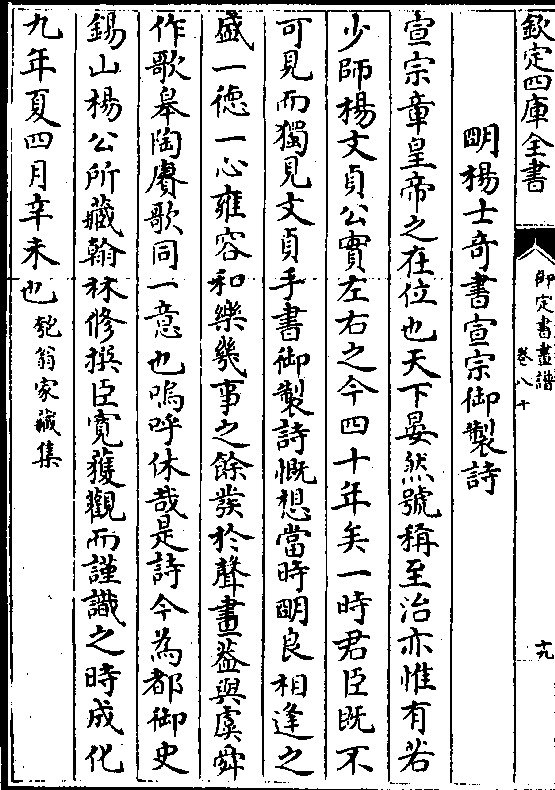 欽定四庫全書
御定書畫譜
卷八十
十九
明楊士奇書宣宗御製詩
宣宗章皇帝之在位也天下晏然號稱至治亦惟有若
少師楊文貞公實左右之今四十年矣一時君臣既不
可見而獨見文貞手書御製詩慨想當時明良相逢之
盛一德一心雍容和樂幾事之餘發於聲畫葢與虞舜
作歌皋陶賡歌同一意也嗚呼休哉是詩今為都御史
錫山楊公所藏翰林修撰臣寛獲觀而謹識之時成化
九年夏四月辛未也匏翁家藏集